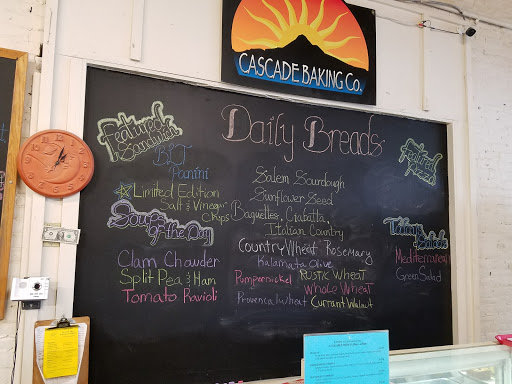 CASCADE BAKING CO.
Daily Breads
Featured
Sandwich
BLT
Panini
Limited Edition
Salt & Vinegar
Chips
Soups
of the Day
Clam Chowder
Split Pea & Ham
Tomato Ravioli
Salem Sourdough
Sunflower Seed
Baguettes, Ciabatta,
Italian Country
Country Wheat Rosemary
Kalamata Olive
Pumpernickel Rustic Wheat
Whole Wheat
Provencal Wheat Currant Walnut
Featured
Today's
Salads
Mediterranean
Green Salad